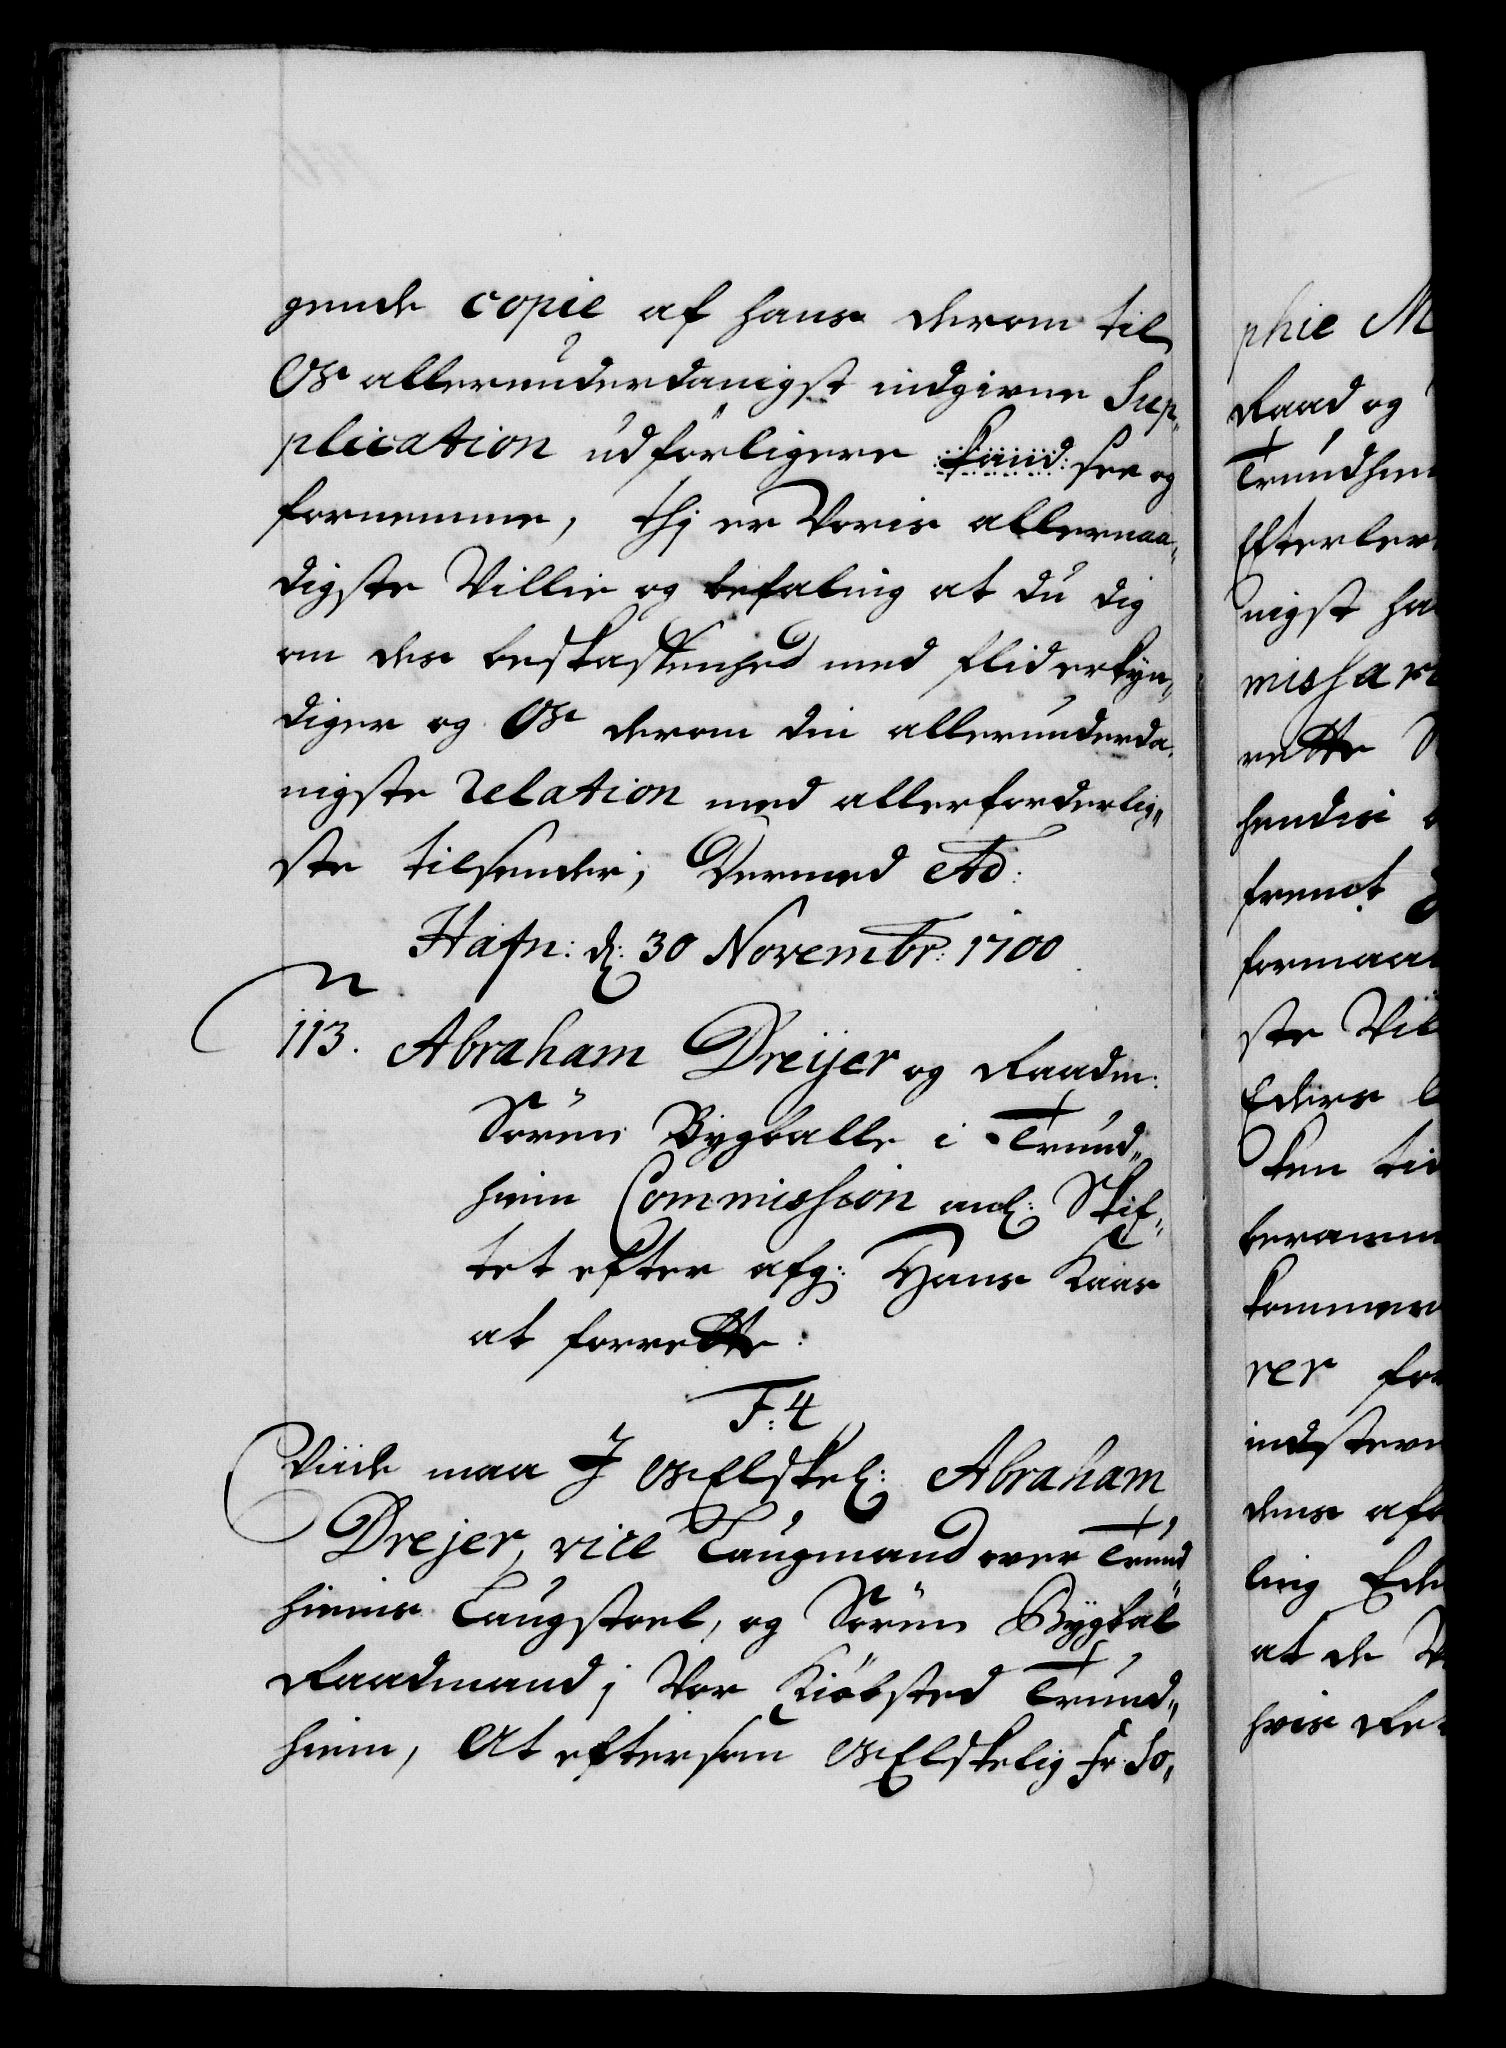 gende copie af hans derom til
Os allerunderdanigst indgivne Sup„
plication udförligere kand: see og
fornemme, thj er Voris allernaa„
digste Villie og befaling at du dig
om des beskaffenhed med flid erkyn„
diger og Os derom din allerunderda„
nigste relation med allerforderlig„
ste tilsender; Dermed etc:
Hafn: d: 30 Novembr: 1700
113. Abraham Dreijer og Raadm:
Sören Bygballe i Trund„
hiem Commission anl: Skif„
tet efter afg: Hans Kaas
at forrette:
F:4
Viide maa I Os Elskel: Abraham
Drejer, vice Laugmand over Trund
hiems Laugstoel, og Sören Bygbal
Raadmand j Vor Kiöbsted Trund„
hiem, At eftersom Os Elskelig Fr: So„
phie M
Raad og
Trundhiem
Efterlev
nigst ha
missari
rette S
hendis
fremt
formaa
ste Vil
Eders
ken tid
beramm
kommer
rer for
indstevn
dens af
ling Ede
at de V
hvis Re